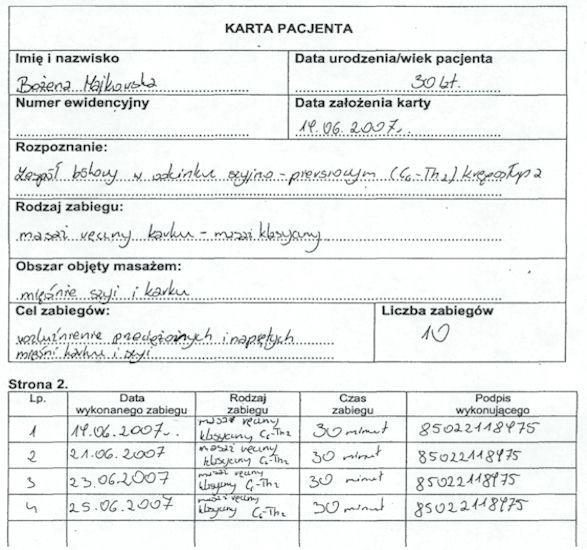 KARTA PACJENTA
Imię i nazwisko
Bożena Majkowska
Data urodzenia/wiek pacjenta
30 lat.
Numer ewidencyjny
Data założenia karty
19.06.2007r.
Rozpoznanie:
Zespół bólowy w odcinku szyjno-piersiowym (C6-Th2) kręgosłupa
Rodzaj zabiegu:
masaż ręczny karku - masaż klasyczny
Obszar objęty masażem:
mięśnie szyi i karku
Cel zabiegów:
rozluźnienie przeciążonych i napiętych
mięśni karku i szyi
Liczba zabiegów
10
Strona 2.
Lp. Data wykonanego zabiegu Rodzaj zabiegu Czas zabiegu Podpis wykonującego
1 19.06.2007r. masaż ręczny klasyczny C6-Th2 30 minut 85022118975
2 21.06.2007 masaż ręczny klasyczny C6-Th2 30 minut 85022118975
3 23.06.2007 masaż ręczny klasyczny C6-Th2 30 minut 85022118975
4 25.06.2007 masaż ręczny klasyczny C6-Th2 30 minut 85022118975